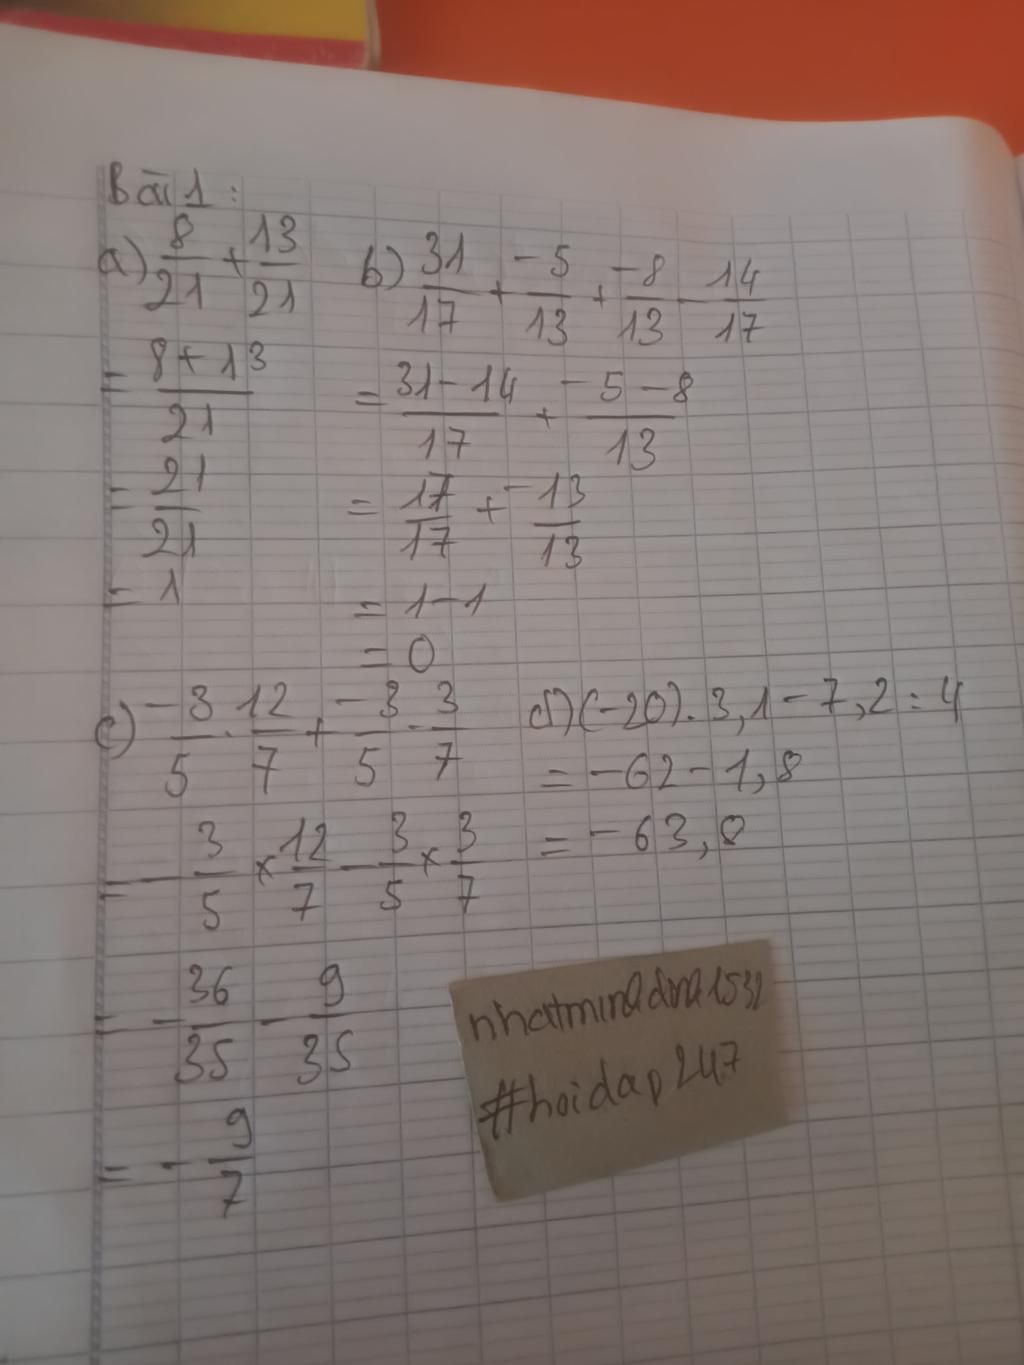 Bài 1:
a) 8/21 + 13/21
= 8+13/21
= 21/21
= 1
b) 31/17 + -5/13 + -8/13 - 14/17
= 31-14/17 + -5-8/13
= 17/17 + -13/13
= 1-1
= 0
c) -3/5 . 12/7 + -3/5 . 3/7
= - 3/5 × 12/7 - 3/5 × 3/7
= - 36/35 - 9/35
= - 9/7
d) (-20). 3,1 - 7,2 : 4
= -62 - 1,8
= -63,8
#hoidap247